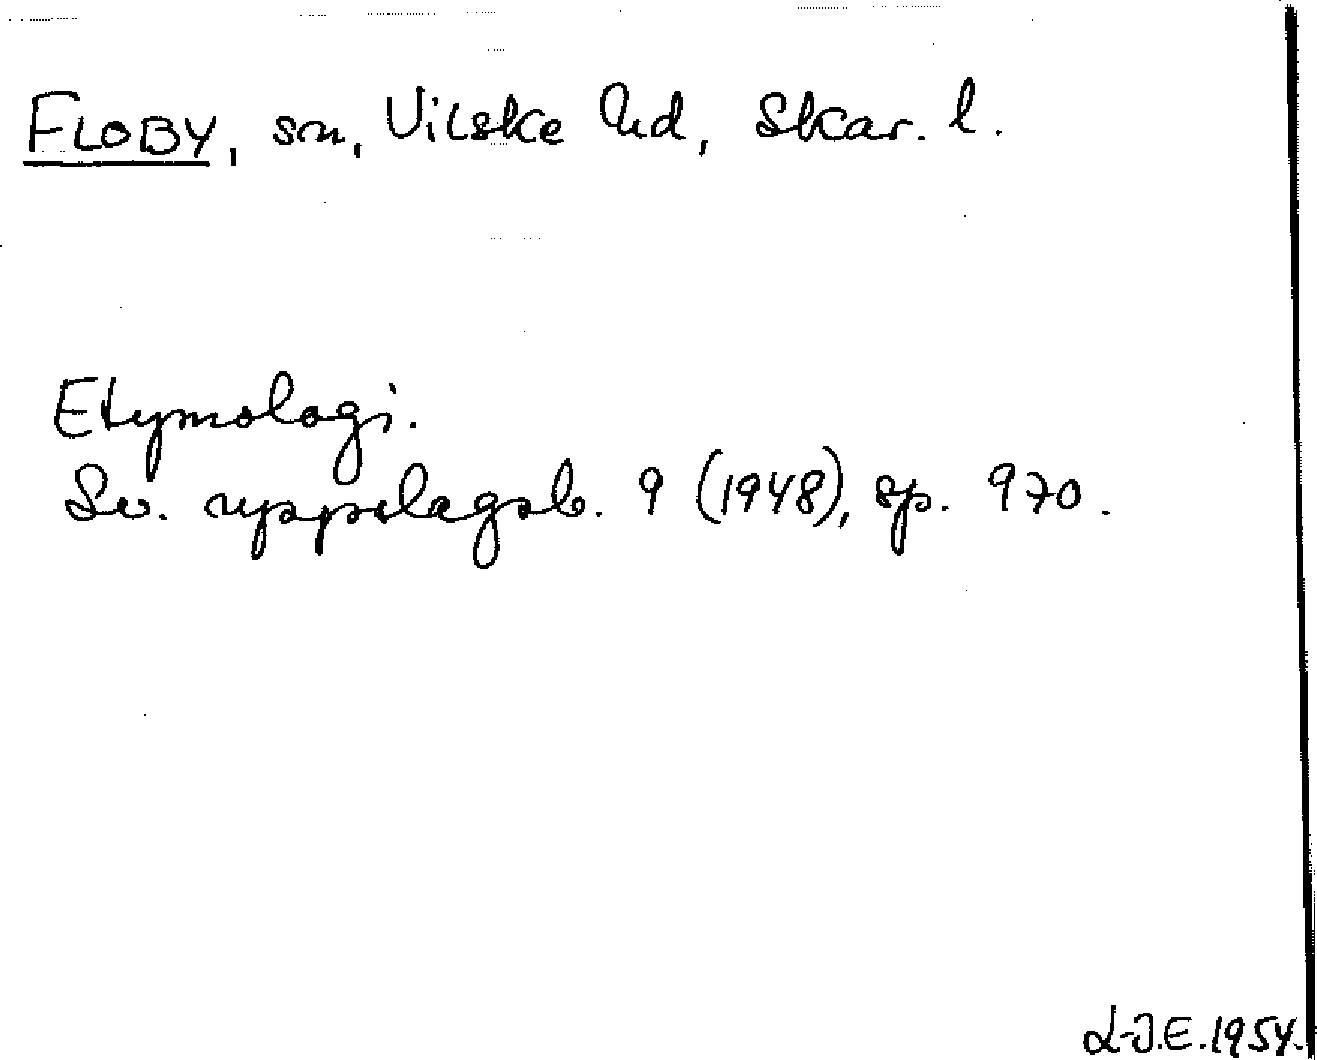 FLOBY, sn, Vilske hd, Skar. l.
Etymologi.
Sv. uppslagsb. 9 (1948), sp. 970.
L-J.E. 1954.